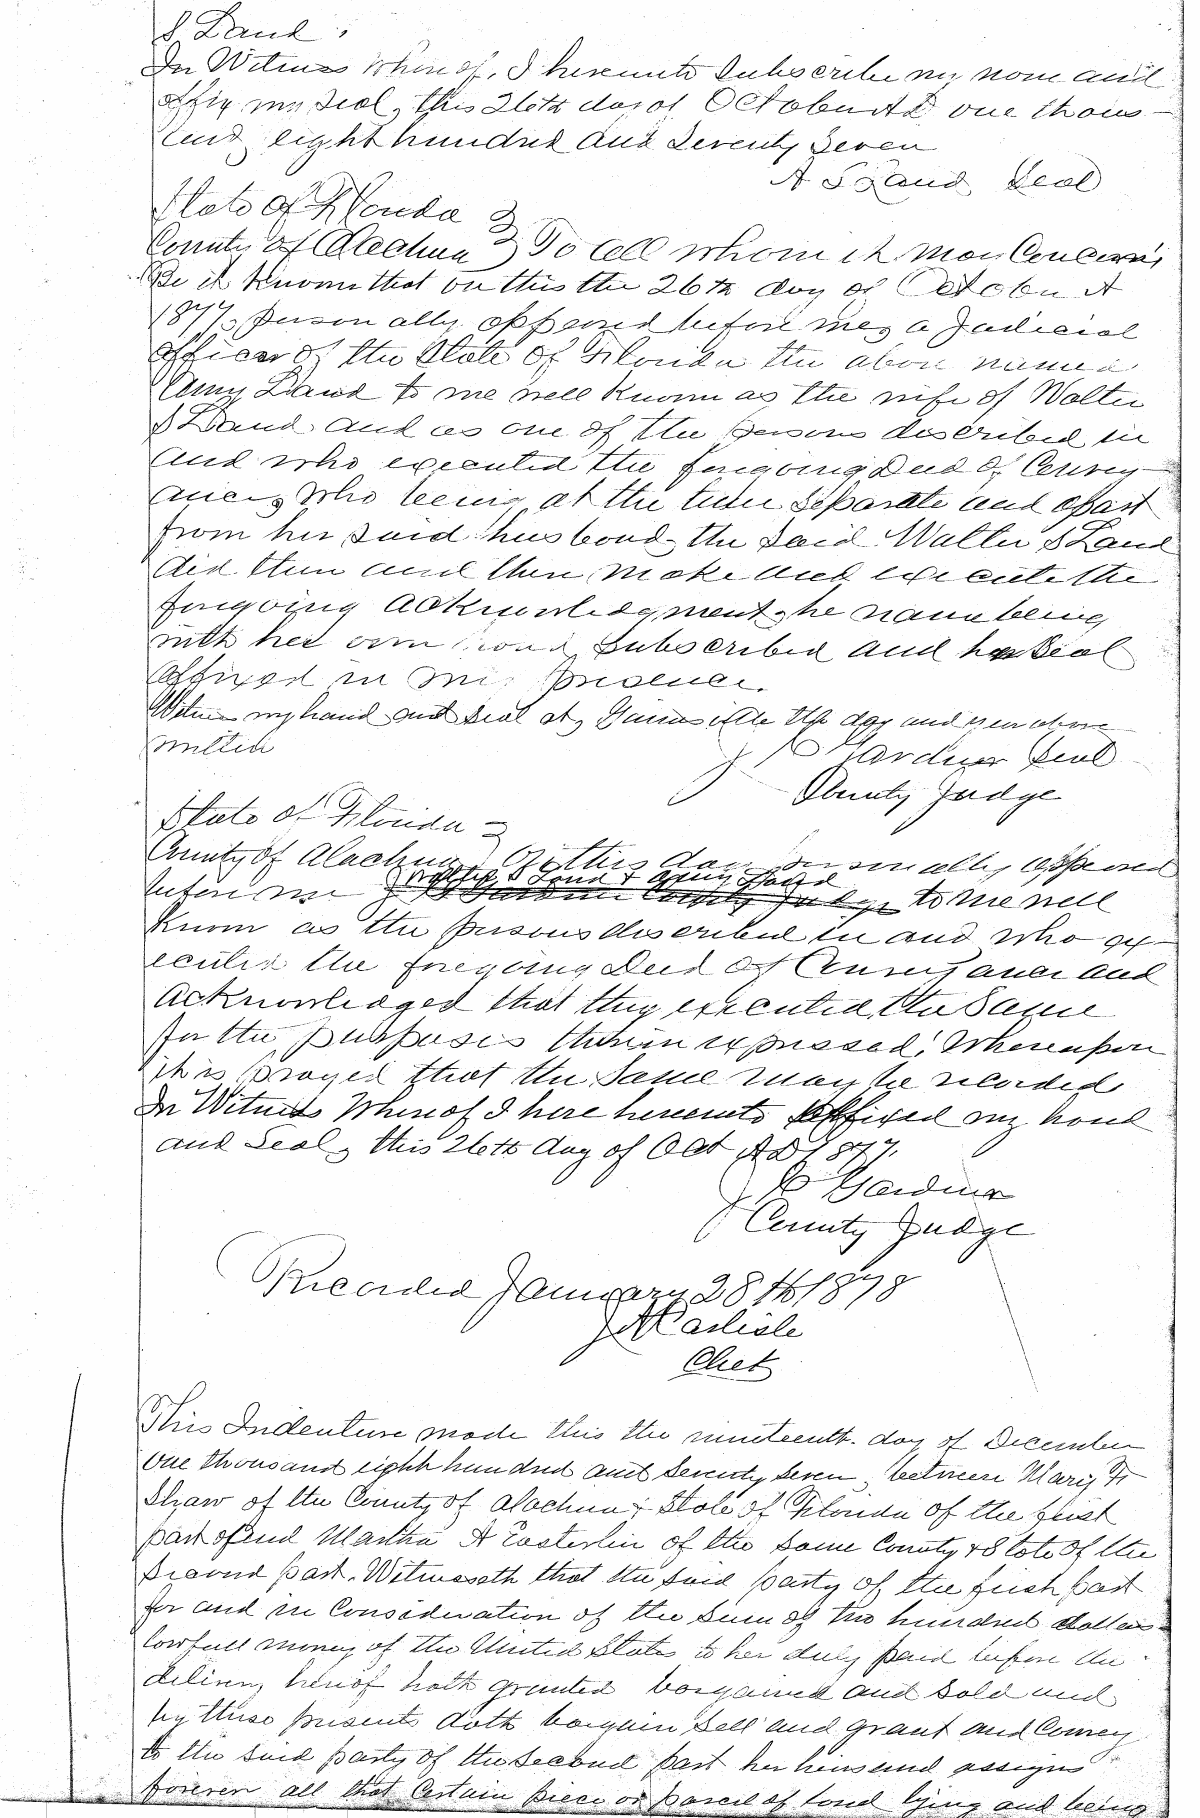 S Land.
In Witness Whereof, I hereunto Subscribe my name and
affix my Seal, this 26th day of October AD one thous-
and eight hundred and Seventy Seven
A S Land Seal
State of Florida
County of Alachua To all whom it may Concern;
Be it Known that on this the 26th day of October A
1877, personally appeared before me, a Judicial
officer of the State of Florida the above named
Amy Land to me well Known as the wife of Walter
S Land. and as one of the persons described in
and who executed the foregoing Deed of Convey-
ance, Who being at the time Separate and apart
from her said husband, the said Walter S Land
did then and there make and execute the
foregoing acknowledgment, he name being
with her own hand Subscribed and her Seal
affixed in my presence.
Witness my hand and Seal at, Gainesville the day and year above
written
J C Gardner Seal
County Judge
State of Florida
County of Alachua On this day personally appeared
Walter S Land & Amy Land
before me J C Gardner County Judge to me well
Known as the persons described in and who ex-
ecuted the foregoing Deed of Conveyance and
acknowledged that they executed the Same
for the purposes therein expressed; Whereupon
it is prayed that the Same may be recorded
In Witness Whereof I here hereunto affixed my hand
and Seal, this 26th day of Oct AD 1877.
J C Gardner
County Judge
Recorded January 28th 1878
J A Carlisle
Clerk
This Indenture made this the nineteenth day of December
one thousand eight hundred and Seventy Seven, between Mary Fr
Shaw of the County of Alachua & State of Florida of the first
part and Martha A Easterlin of the same County & State of the
Second part. Witnesseth that the said party of the first part
for and in Consideration of the Sum of two hundred dollars
lawfull money of the United States to her duly paid before the
delivery hereof hath granted bargained and sold and
by these presents doth bargain Sell and grant and Convey
to the said party of the Second part her heirs and assigns
forever all that Certain piece or parcel of land lying and being